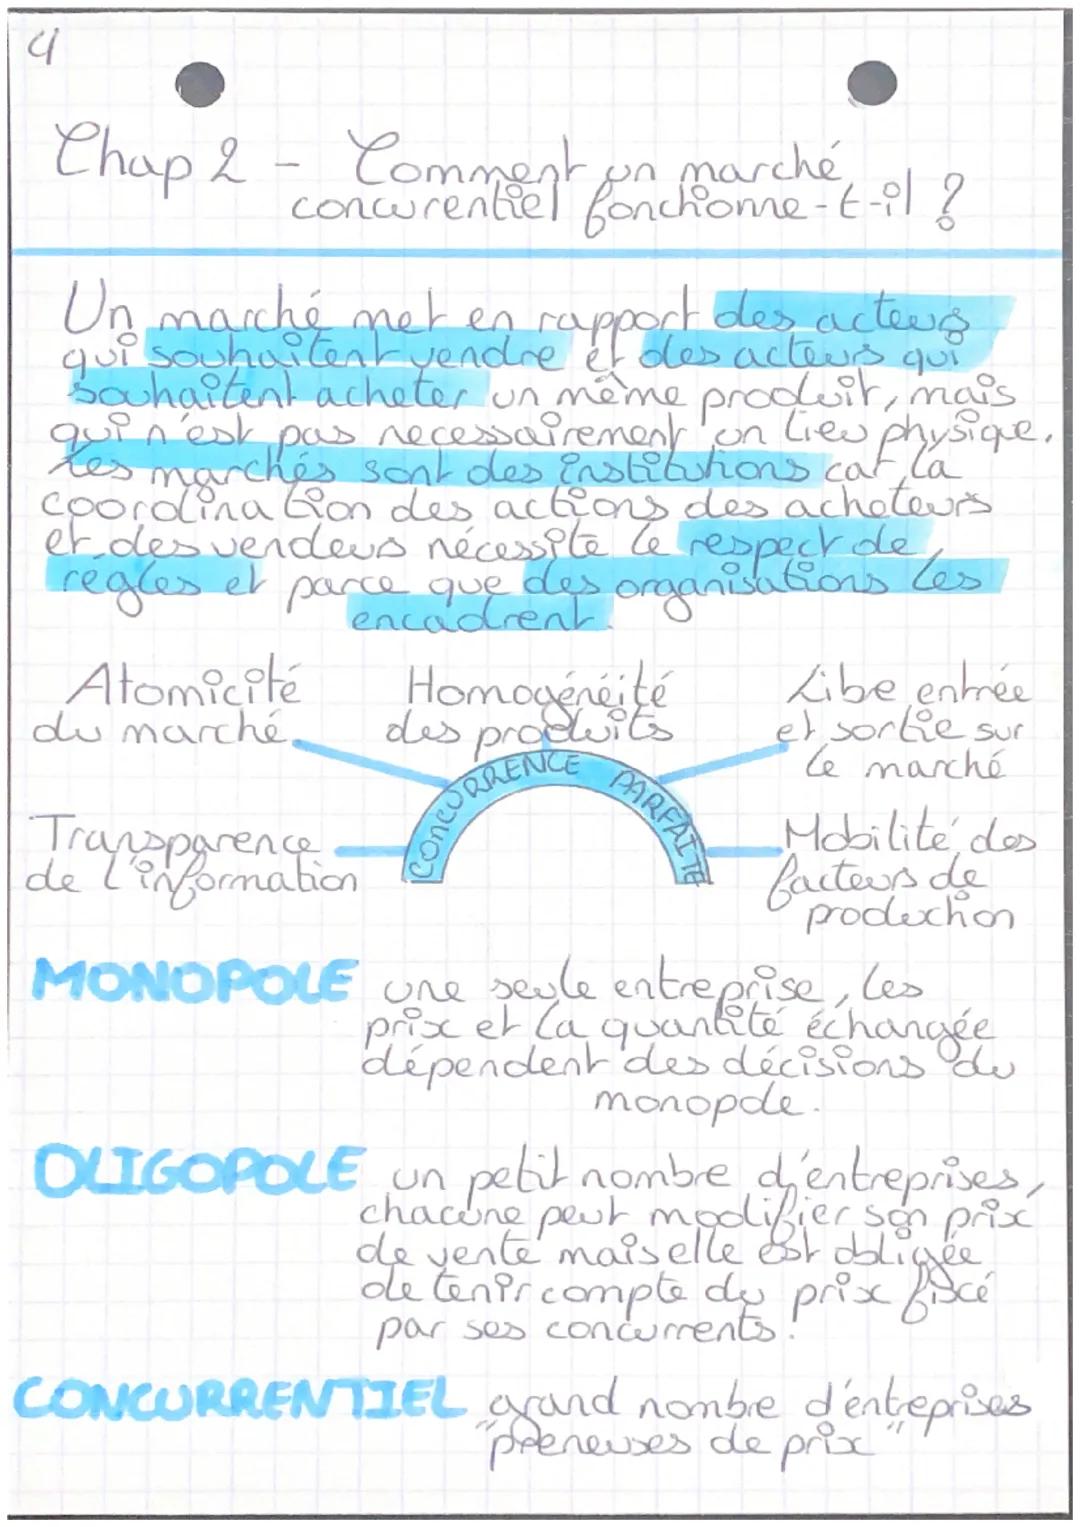 4
Chap 2 - Comment un marché
concurentiel fonctionne-t-il ?
Un marché met en rapport des acteurs
qui souhaitent vendre et des acteurs qui
souhaitent acheter un même produit, mais
qui n'est pas necessairement un lieu physique.
Les marchés sont des institutions car la
coordination des actions des acheteurs
et des vendeurs nécessite le respect de
règles et parce que des organisations les
encadrent.
Atomicité
du marché
Homogénéité
des produits
Libe entrée
et sortie sur
le marché
CONCURRENCE PARFAITE
Transparence
de l'information
Mobilité des
facteurs de
production
MONOPOLE une seule entreprise, les
prix et la quantité échangée
dépendent des décisions du
monopole.
OLIGOPOLE un petit nombre d'entreprises,
chacune peut modifier son prix
de vente mais elle est obligée
de tenir compte du prix fixé
par ses concurrents.
CONCURRENTIEL grand nombre d'entreprises
"preneuses de prix"